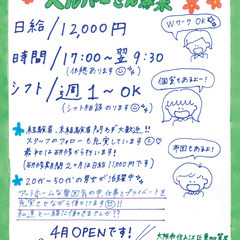 ヘルパーさん募集
日給/12,000円
時間/17:00～翌9:30
(休憩あります)
シフト/週1～OK
(シフト相談のります)
WワークOK
個室もあるよー!
本田もあるよ!
経験者、未経験者問わず大歓迎!!
スタッフのフォローも充実しています
最初は研修から行います!
(研修期間2ヶ月は日給11,000円です)
20代～50代の男女が活躍中
アットホームな雰囲気の中、仕事とプライベートを
充実させながら働けます!!
私達と一緒に働きませんか??
4月OPENです!